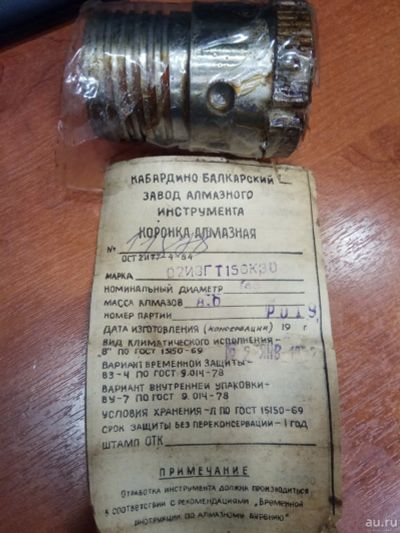 КАБАРДИНО БАЛКАРСКИЙ
ЗАВОД АЛМАЗНОГО
ИНСТРУМЕНТА
КОРОНКА АЛМАЗНАЯ
№
МАРКА 02И3ГТ150К30
НОМИНАЛЬНЫЙ ДИАМЕТР
МАССА АЛМАЗОВ
НОМЕР ПАРТИИ
ДАТА ИЗГОТОВЛЕНИЯ (КОНСЕРВАЦИИ) 19 г
ВИД КЛИМАТИЧЕСКОГО ИСПОЛНЕНИЯ-
"В" ПО ГОСТ 15150-69
ВАРИАНТ ВРЕМЕННОЙ ЗАЩИТЫ-
ВЗ-4 ПО ГОСТ 9.014-78
ВАРИАНТ ВНУТРЕННЕЙ УПАКОВКИ-
ВУ-7 ПО ГОСТ 9.014-78
УСЛОВИЯ ХРАНЕНИЯ-Л ПО ГОСТ 15150-69
СРОК ЗАЩИТЫ БЕЗ ПЕРЕКОНСЕРВАЦИИ-1 ГОД
ШТАМП ОТК
ПРИМЕЧАНИЕ
ОТРАБОТКА ИНСТРУМЕНТА ДОЛЖНА ПРОИЗВОДИТЬСЯ
В СООТВЕТСТВИИ С РЕКОМЕНДАЦИЯМИ „ВРЕМЕННОЙ
ИНСТРУКЦИИ ПО АЛМАЗНОМУ БУРЕНИЮ"
au.ru